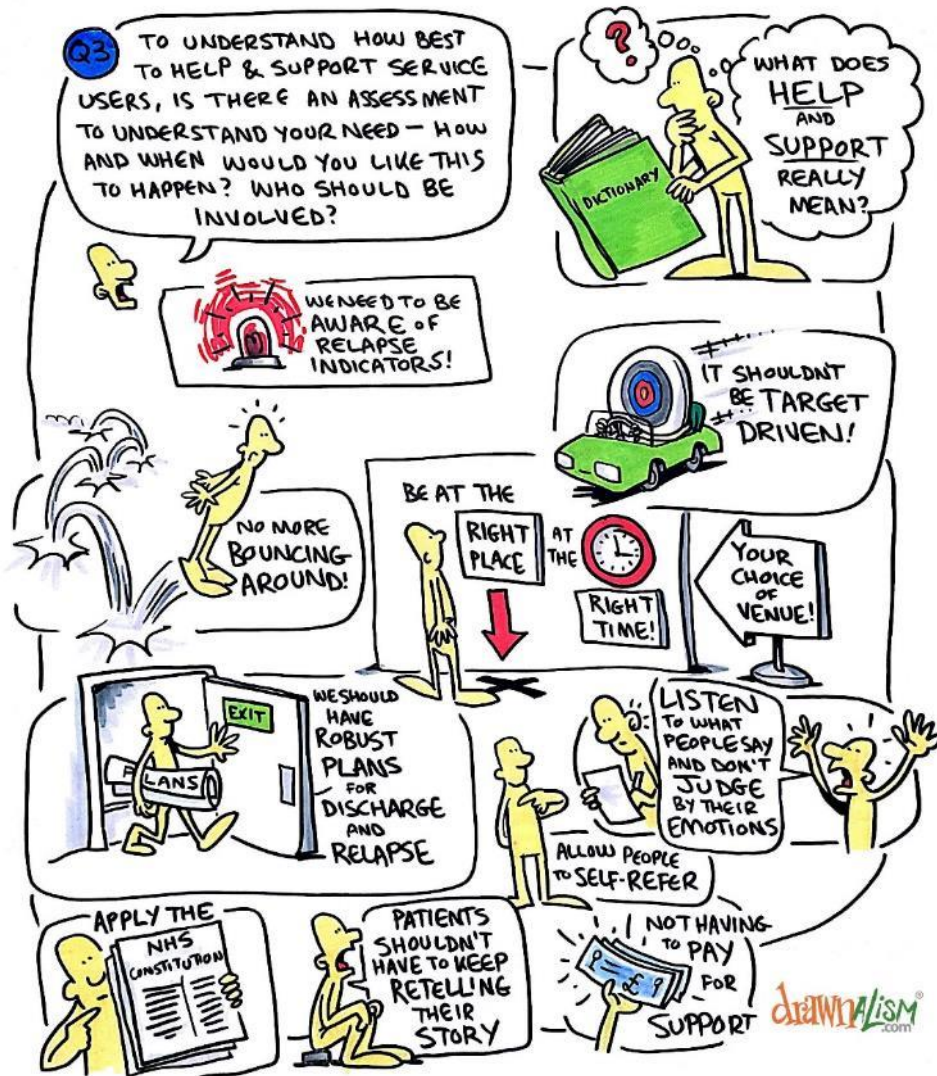 Q3
TO UNDERSTAND HOW BEST
TO HELP & SUPPORT SERVICE
USERS, IS THERE AN ASSESSMENT
TO UNDERSTAND YOUR NEED - HOW
AND WHEN WOULD YOU LIKE THIS
TO HAPPEN? WHO SHOULD BE
INVOLVED?
?
DICTIONARY
WHAT DOES
HELP
AND
SUPPORT
REALLY
MEAN?
WE NEED TO BE
AWARE OF
RELAPSE
INDICATORS!
IT SHOULDN'T
BE TARGET
DRIVEN!
NO MORE
BOUNCING
AROUND!
BE AT THE
RIGHT
PLACE
AT
THE
RIGHT
TIME!
YOUR
CHOICE
OF
VENUE!
EXIT
PLANS
WE SHOULD
HAVE
ROBUST
PLANS
FOR
DISCHARGE
AND
RELAPSE
LISTEN
TO WHAT
PEOPLE SAY
AND DON'T
JUDGE
BY THEIR
EMOTIONS
ALLOW PEOPLE
TO SELF-REFER
APPLY THE
NHS
CONSTITUTION
PATIENTS
SHOULDN'T
HAVE TO KEEP
RETELLING
THEIR
STORY
NOT HAVING
TO PAY
FOR
SUPPORT
£
drawnALISM®
.com